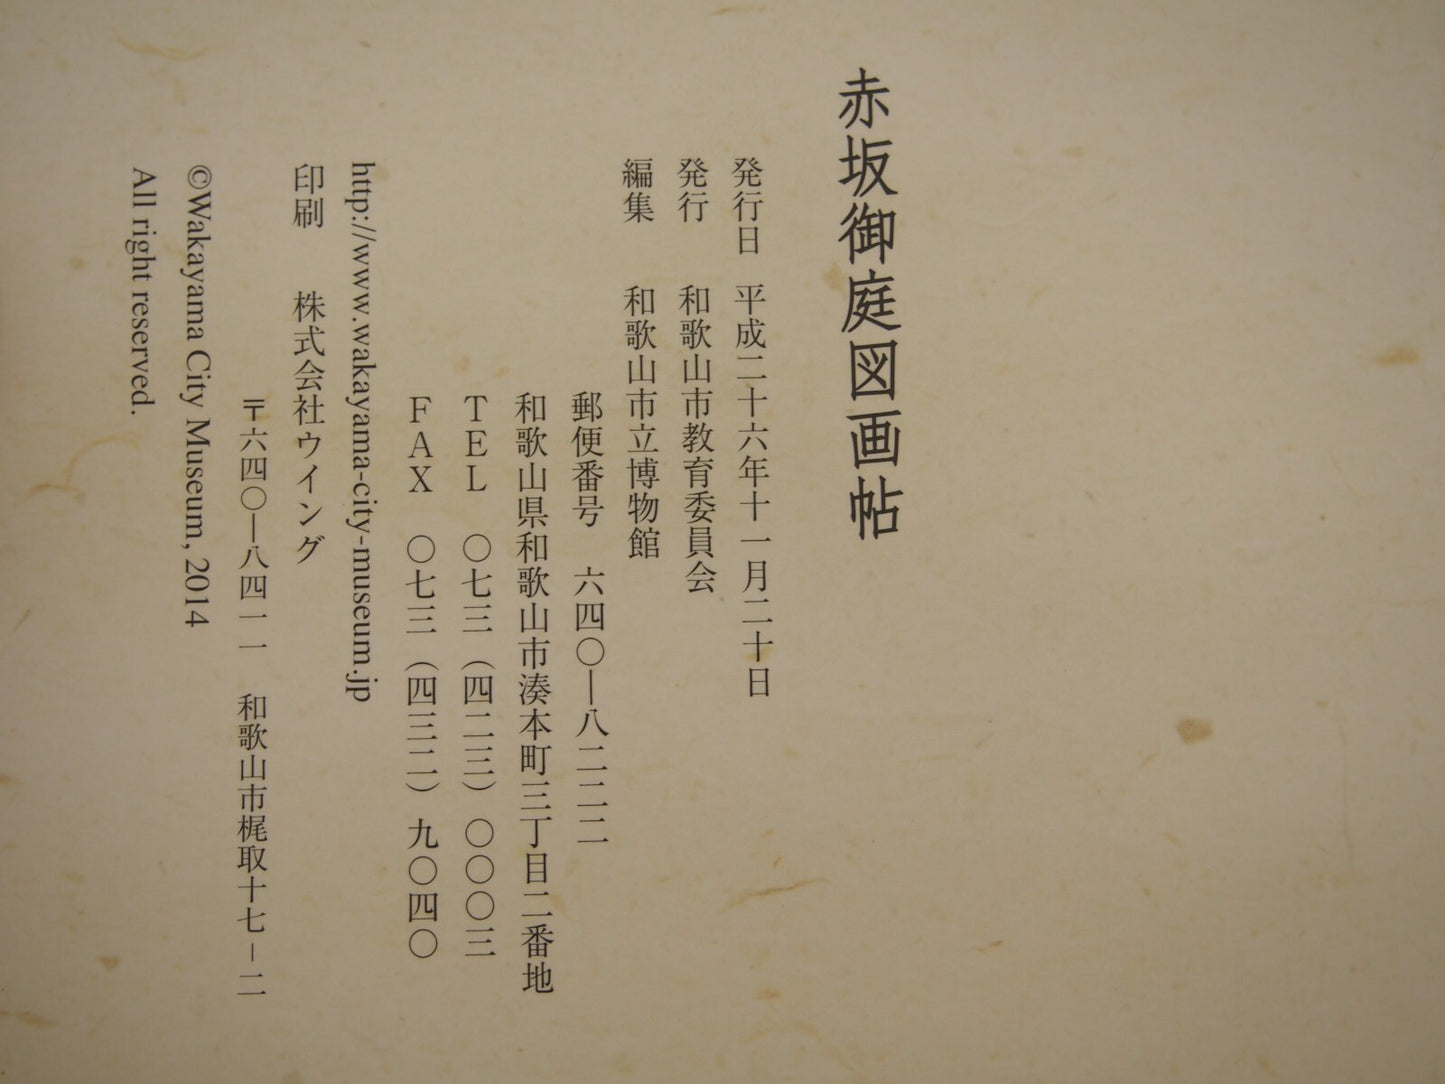 赤坂御庭図画帖
発行日　平成二十六年十一月二十日
発行　和歌山市教育委員会
編集　和歌山市立博物館
郵便番号　六四〇―八二二二
和歌山県和歌山市湊本町三丁目二番地
TEL　〇七三（四二三）〇〇〇三
FAX　〇七三（四三二）九〇四〇
http://www.wakayama-city-museum.jp
印刷　株式会社ウイング
〒六四〇―八四一一　和歌山市梶取十七－二
©Wakayama City Museum, 2014
All right reserved.